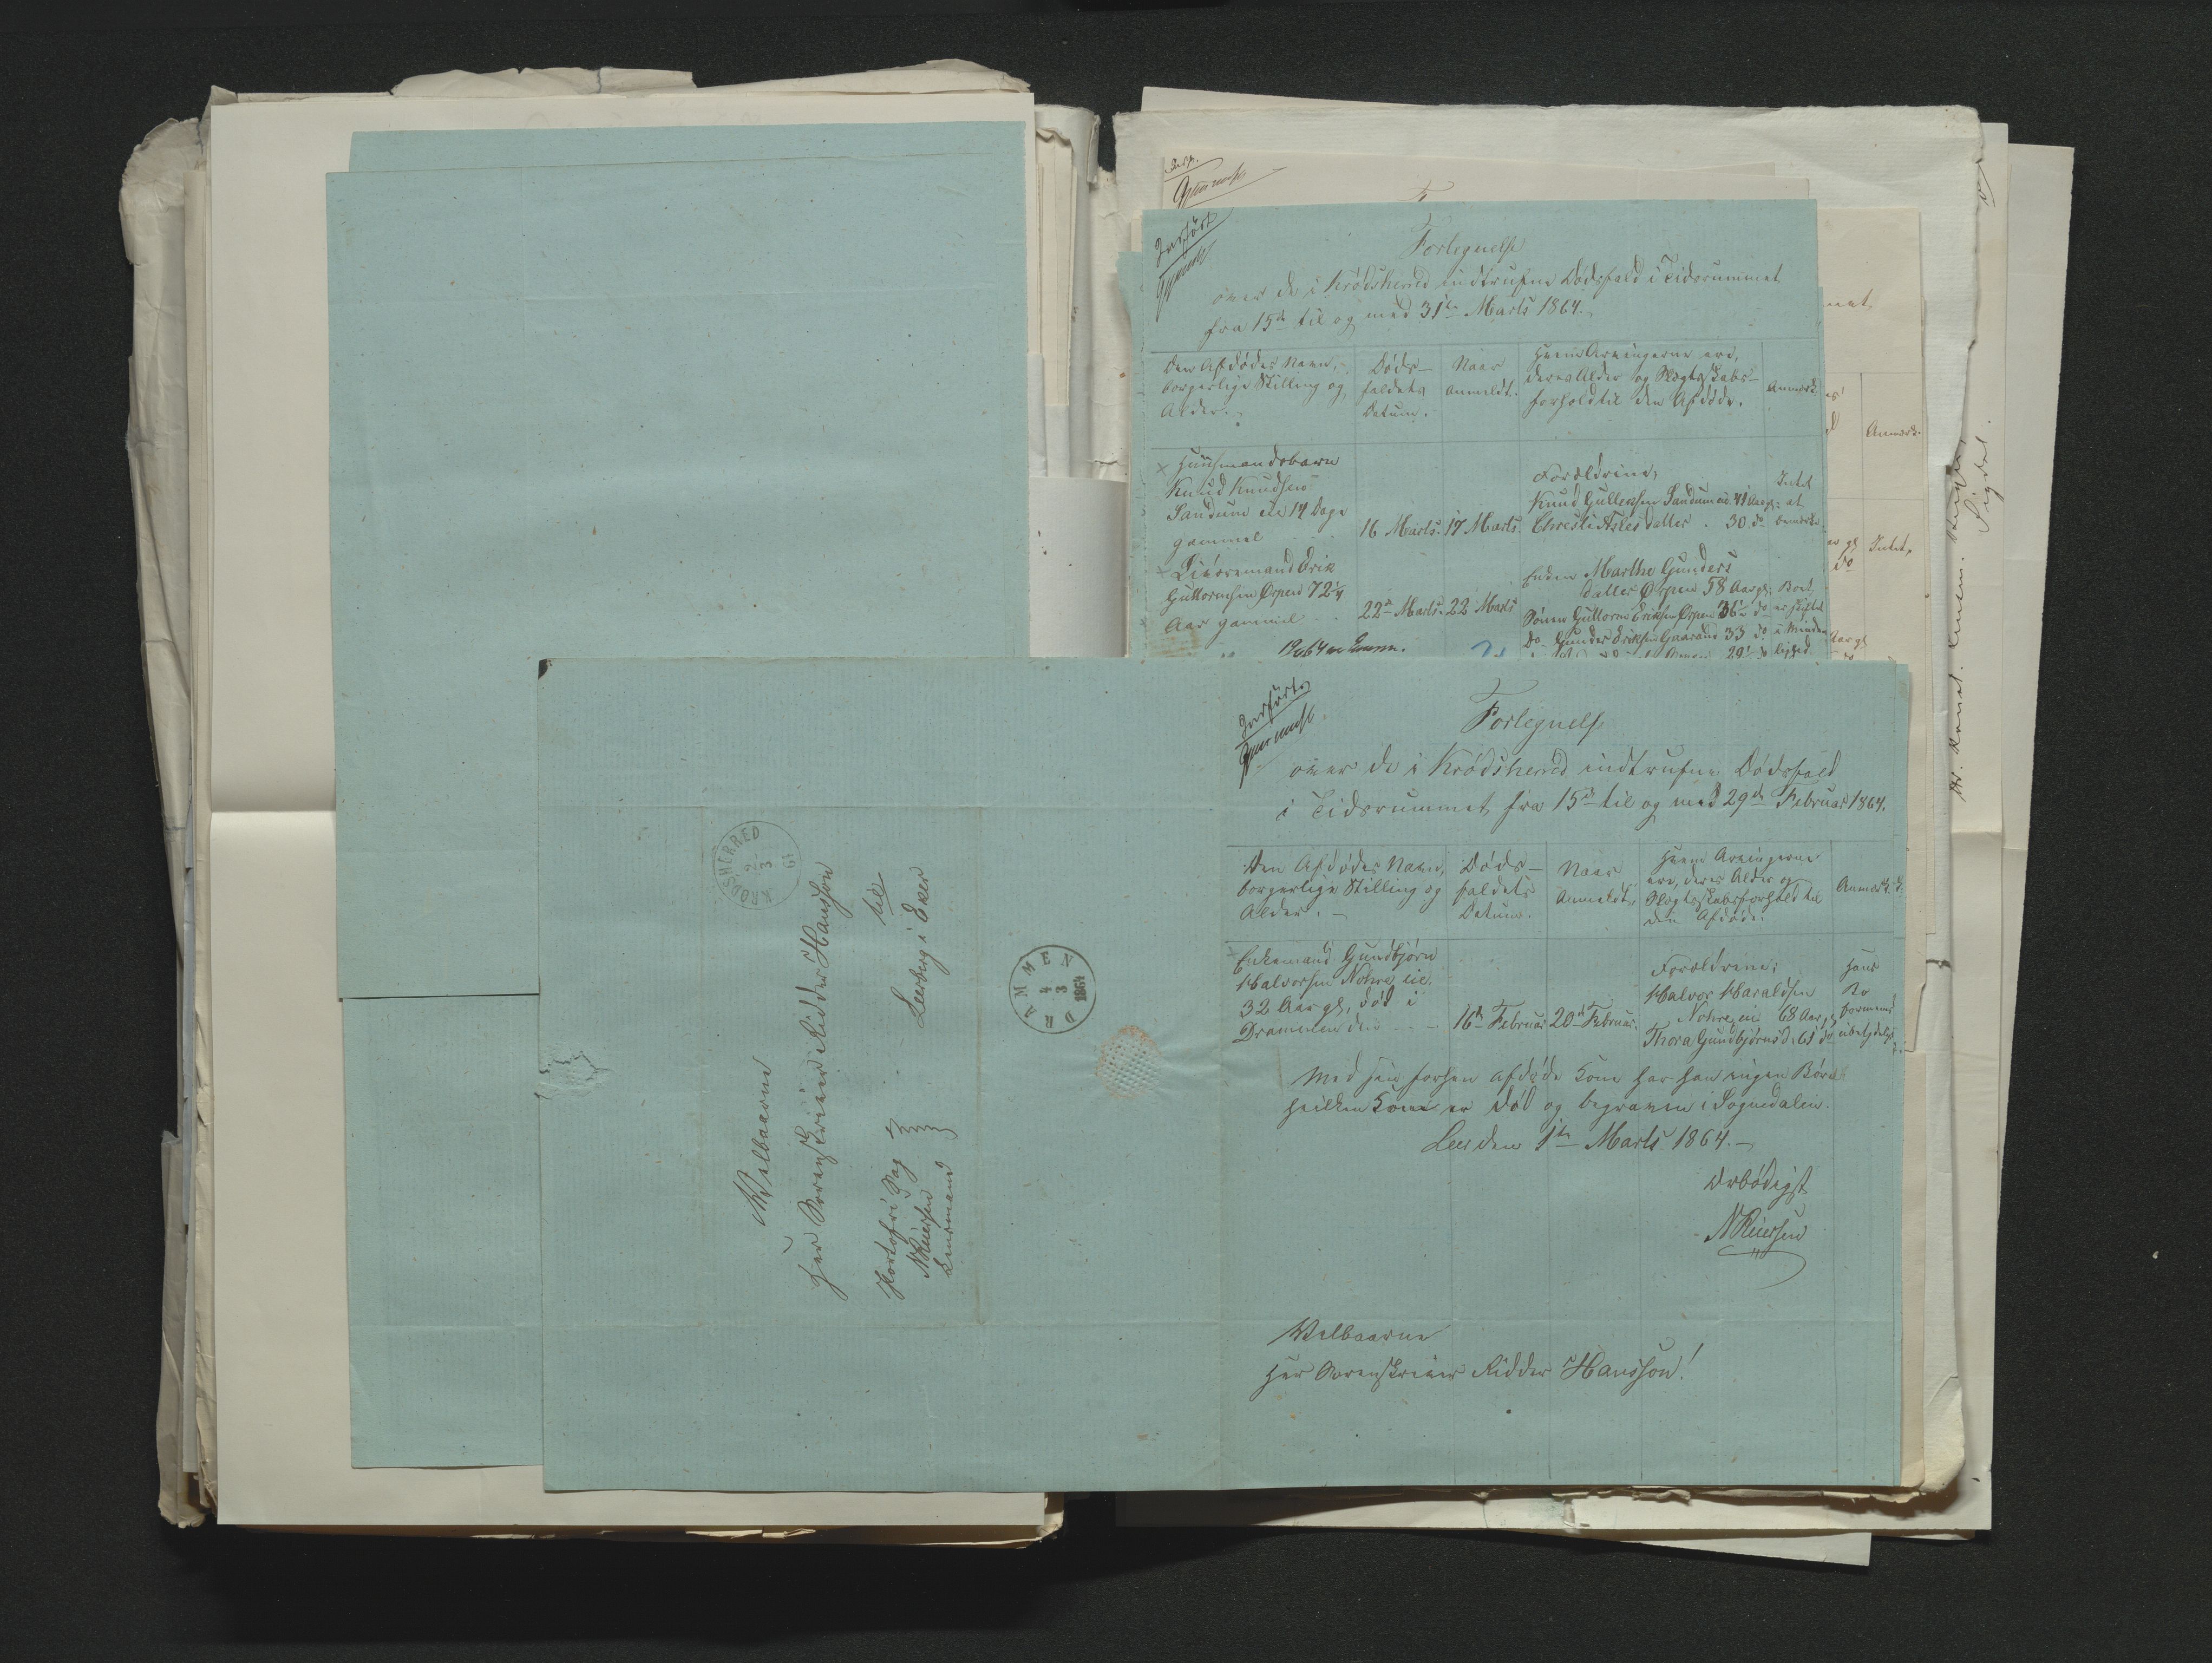 Indført
Fortegnelse
over de i Krødsherred indtrufne Dødsfald i Tidsrummet
fra 15de til og med 31te Marts 1864.
Den Afdødes Navn,
borgerlige Stilling og
Alder.
Døds-
faldets
Datum.
Naar
anmeldt.
Hvem Arvingerne ere,
deres Alder og Slægtskabs-
forhold til den Afdøde.
Anmærk.
Huusmandsbarn
Knud Knudsen
Sandum eie 14 Dage
gammel
16 Marts. 17 Marts.
Forældrene,
Knud Gulleksen Sandum eie 41 Aar gl.
Christi Asles datter 30 do
Intet
at
bemærke
Livøremand Erik
Guttormsen Ørpen 72 1/4
Aar gammel
22de Marts. 22 Marts
Enken Marthe Gunders
datter Ørpen 58 Aar gl.
Sønner Guttorm Eriksen Ørpen 36 1/2 do
do Gunder Eriksen 33 do
Boet
er skiftet
i Minde
lighed
Anmærk.
Intet.
Sigdal.
Indført
Fortegnelse
over de i Krødsherred indtrufne Dødsfald
i Tidsrummet fra 15de til og med 29de Februar 1864.
Den Afdødes Navn,
borgerlige Stilling og
Alder.
Døds-
faldets
Datum.
Naar
Anmeldt.
Hvem Arvingerne
ere, deres Alder og
Slægtskabsforhold til
den Afdøde.
Anmærk.
Enkemand Gundbjørn
Halvorsen Nohre eie
32 Aar gl, død i
Drammen den
16de Februar 20de Februar.
Forældrene;
Halvor Haraldsen
Nohre eie 68 Aar gl
Thora Gundbjørnsd. 61 do
Hans
Bo
formeent
ubetydeligt
Med sin forhen afdøde Kone har han ingen Børn
hvilken Kone er død og begraven i Sognedalen.
Leer den 1te Marts 1864.
Ærbødigst
N Reiersen
Velbaarne
Herr Sorenskriver Ridder Hansson!
KRØDSHERRED
2 3 64
DRAMMEN
4 3 1864
Velbaarne
Herr Sorenskriver Ridder Hansson
til
Leerberg i Eker
Portofri Sag
N Reiersen
Lensmand